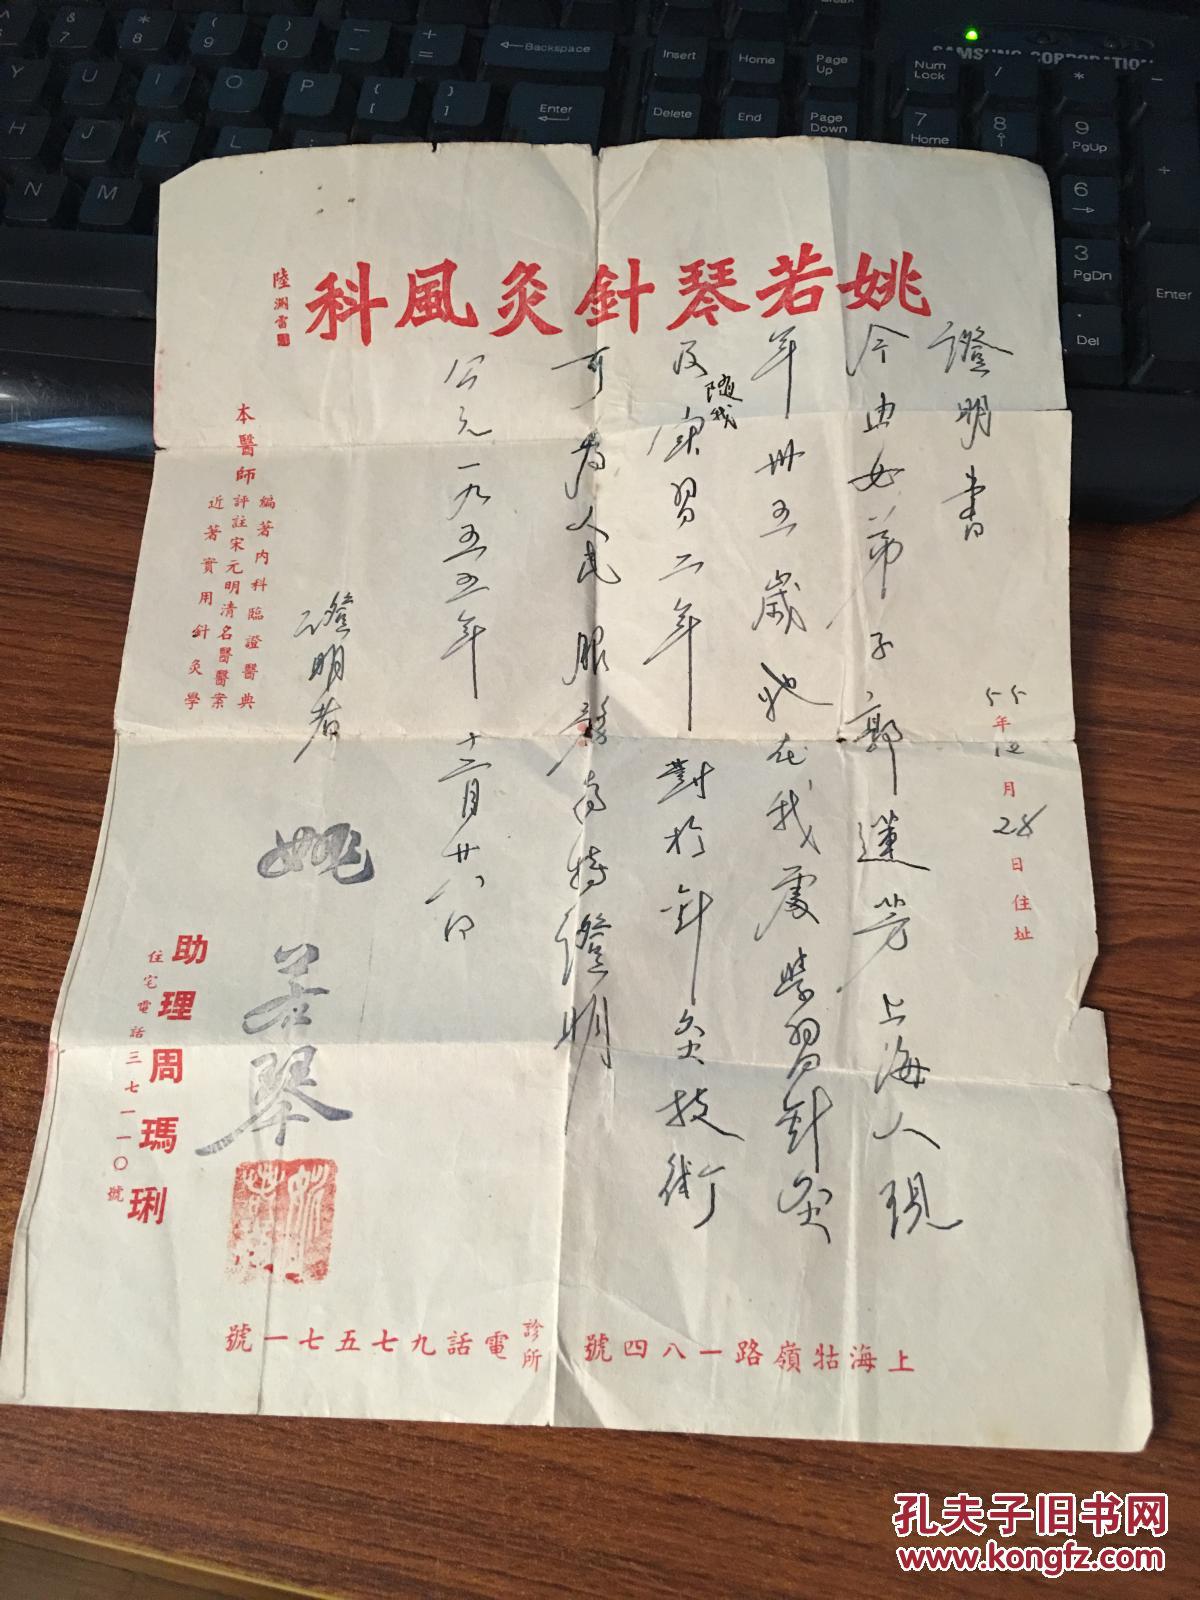 姚若琴針灸風科
陸淵雷
55年12月28日住址
證明書
今由女弟子郭蓮芳上海人現
年卅五歲她在我處學習針灸
及隨我實習二年對於針灸技術
可為人民服務為特證明
公元一九五五年十二月廿八日
證明者
姚若琴
本醫師
編著內科臨證醫典
評註宋元明清名醫醫案
近著實用針灸學
助理周瑪琍
住宅電話三七一一〇號
上海牯嶺路一八四號
診所電話九七五七一號
&
7
*
8
(
9
)
0
+
=
Backspace
Insert
Home
Page Up
Num Lock
/
*
-
SAMSUNG CORPORATION
Y
U
I
O
P
Enter
Delete
End
Page Down
7 Home
8
9 PgUp
+
H
J
K
L
6
N
M
3 PgDn
Enter
Del
孔夫子旧书网
www.kongfz.com